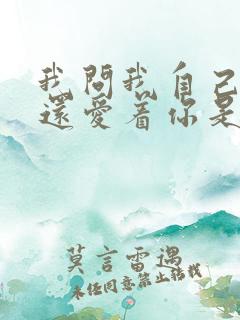 我問我自己
還愛着你是
莫言雷遇
未经同意禁止转载